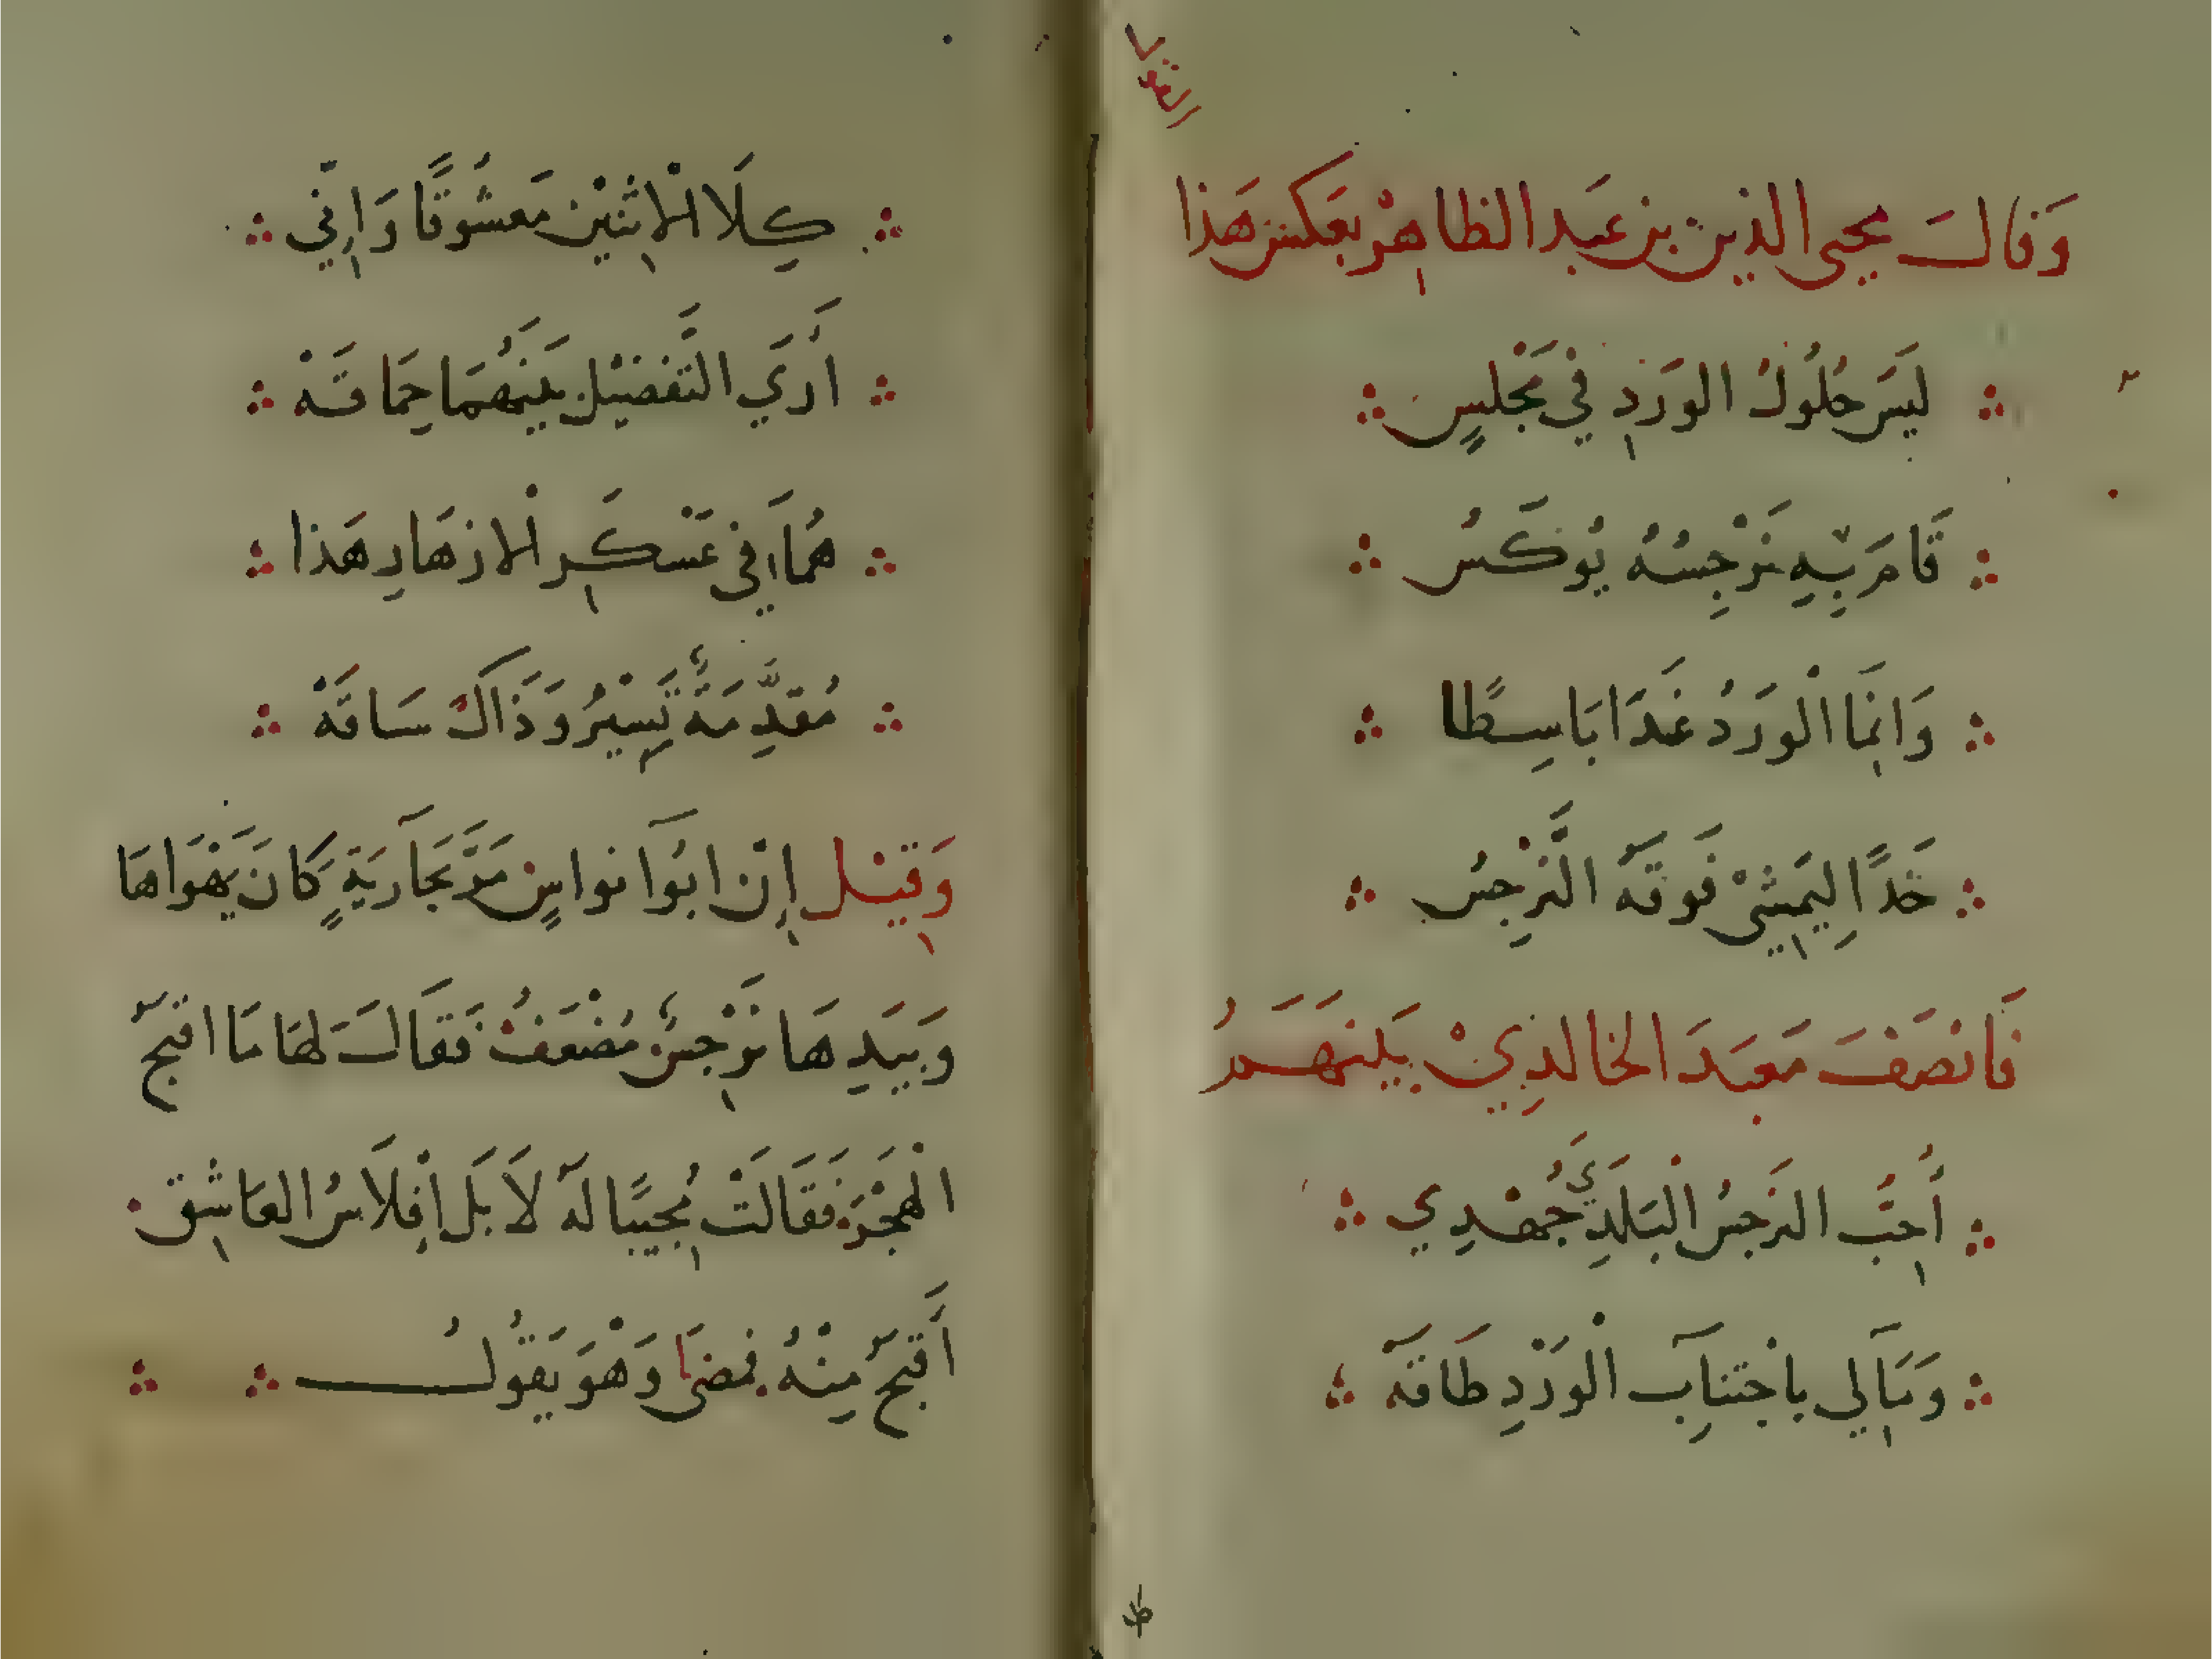 القول
وَقَالَ محيى الدين بن عَبد الظاهِرْ بعَكس هَذا
ليسَ حُلُولُ الورَدِ في مَجْلسٍ
قَامَ بِهِ نَرْجِسُهُ يُوكَسُ
وَانَمَا الْورَدُ غَدَا بَاسِطًا
خَدًا لِيَمِشِىْ فَوقَهُ النَّرْجِسُ
فَانْصَفَ مَعبَدَ الخالدِيْ بَينهَمرُ
أُحِبُّ النَرجسُ الْبَلَدِيَّ جُهْدِي
وَمَالِي باجْتنابِ الْورْدِ طَاقَه
كِلَا الْاِثنيْن مَعشُوقًا وَاِنّي
أَرَي التَّفضيْل بَينَهُمَا حِمَاقَهْ
هُمَا في عَسْكَرِ الْازهَارِ هَذا
مُقدِّمَةٌ تَسِيْرُ وَذَاكَ سَاقَهْ
وَقيْل إنْ ابُوا نواسٍ مَرَّ بَجَارَيةٍ كَانَ يَهَواهَا
وَبيَدِهَا نَرْجِسٌ مُضْعَفُ فَقَالَ لهَا مَا اقبَحَ
الْهَجْرَ فَقَالَتْ مُجيبًا لَهُ لَا بَل اِفْلَاسُ العَاشِق
أَقبَحَ مِنْهُ فمضَى وَهْوَ يَقُولُ